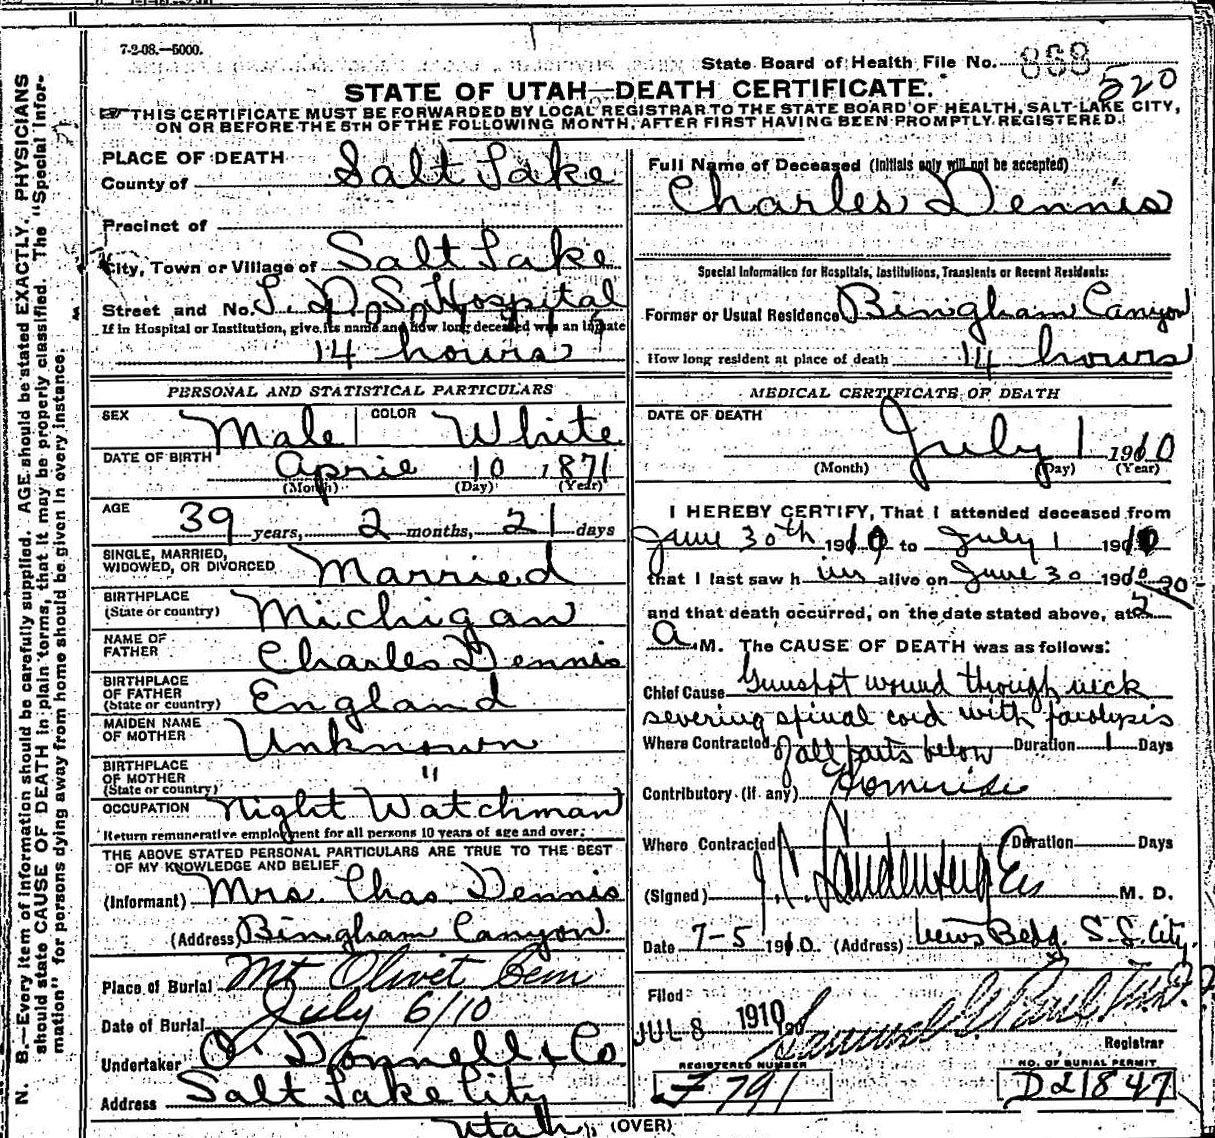 7-2-08.—5000.
State Board of Health File No. 868
520
STATE OF UTAH—DEATH CERTIFICATE.
THIS CERTIFICATE MUST BE FORWARDED BY LOCAL REGISTRAR TO THE STATE BOARD OF HEALTH, SALT LAKE CITY,
ON OR BEFORE THE 5TH OF THE FOLLOWING MONTH, AFTER FIRST HAVING BEEN PROMPTLY REGISTERED.
N. B.—Every item of information should be carefully supplied. AGE should be stated EXACTLY. PHYSICIANS
should state CAUSE OF DEATH in plain terms, that it may be properly classified. The "Special Infor-
mation" for persons dying away from home should be given in every instance.
PLACE OF DEATH
County of Salt Lake
Precinct of
City, Town or Village of Salt Lake
Street and No. L. D. S. Hospital
If in Hospital or Institution, give its name and how long deceased was an inmate
14 hours
PERSONAL AND STATISTICAL PARTICULARS
SEX Male COLOR White
DATE OF BIRTH April 10, 1871
(Month) (Day) (Year)
AGE 39 years, 2 months, 21 days
SINGLE, MARRIED,
WIDOWED, OR DIVORCED Married
BIRTHPLACE
(State or country) Michigan
NAME OF
FATHER Charles Dennis
BIRTHPLACE
OF FATHER
(State or country) England
MAIDEN NAME
OF MOTHER Unknown
BIRTHPLACE
OF MOTHER
(State or country) "
OCCUPATION Night Watchman
Return remunerative employment for all persons 10 years of age and over.
THE ABOVE STATED PERSONAL PARTICULARS ARE TRUE TO THE BEST
OF MY KNOWLEDGE AND BELIEF
(Informant) Mrs. Chas Dennis
(Address) Bingham Canyon.
Place of Burial Mt Olivet Cem
Date of Burial July 6/10
Undertaker O'Donnell & Co
Address Salt Lake City
Utah
(OVER)
Full Name of Deceased (Initials only will not be accepted)
Charles Dennis
Special Information for Hospitals, Institutions, Transients or Recent Residents:
Former or Usual Residence Bingham Canyon
How long resident at place of death 14 hours
MEDICAL CERTIFICATE OF DEATH
DATE OF DEATH
July 1 1910
(Month) (Day) (Year)
I HEREBY CERTIFY, That I attended deceased from
June 30th 1910 to July 1 1910
that I last saw him alive on June 30 1910
and that death occurred, on the date stated above, at 2 30
a M. The CAUSE OF DEATH was as follows:
Chief Cause Gunshot wound though neck
severing spinal cord with paralysis
Where Contracted of all parts below Duration 1 Days
Contributory (if any) Homicide
Where Contracted Duration Days
(Signed) M. D.
Date 7-5 1910 (Address) News Bldg. S. L. City.
Filed
JUL 8 1910
Registrar
REGISTERED NUMBER
791
NO. OF BURIAL PERMIT
D21847